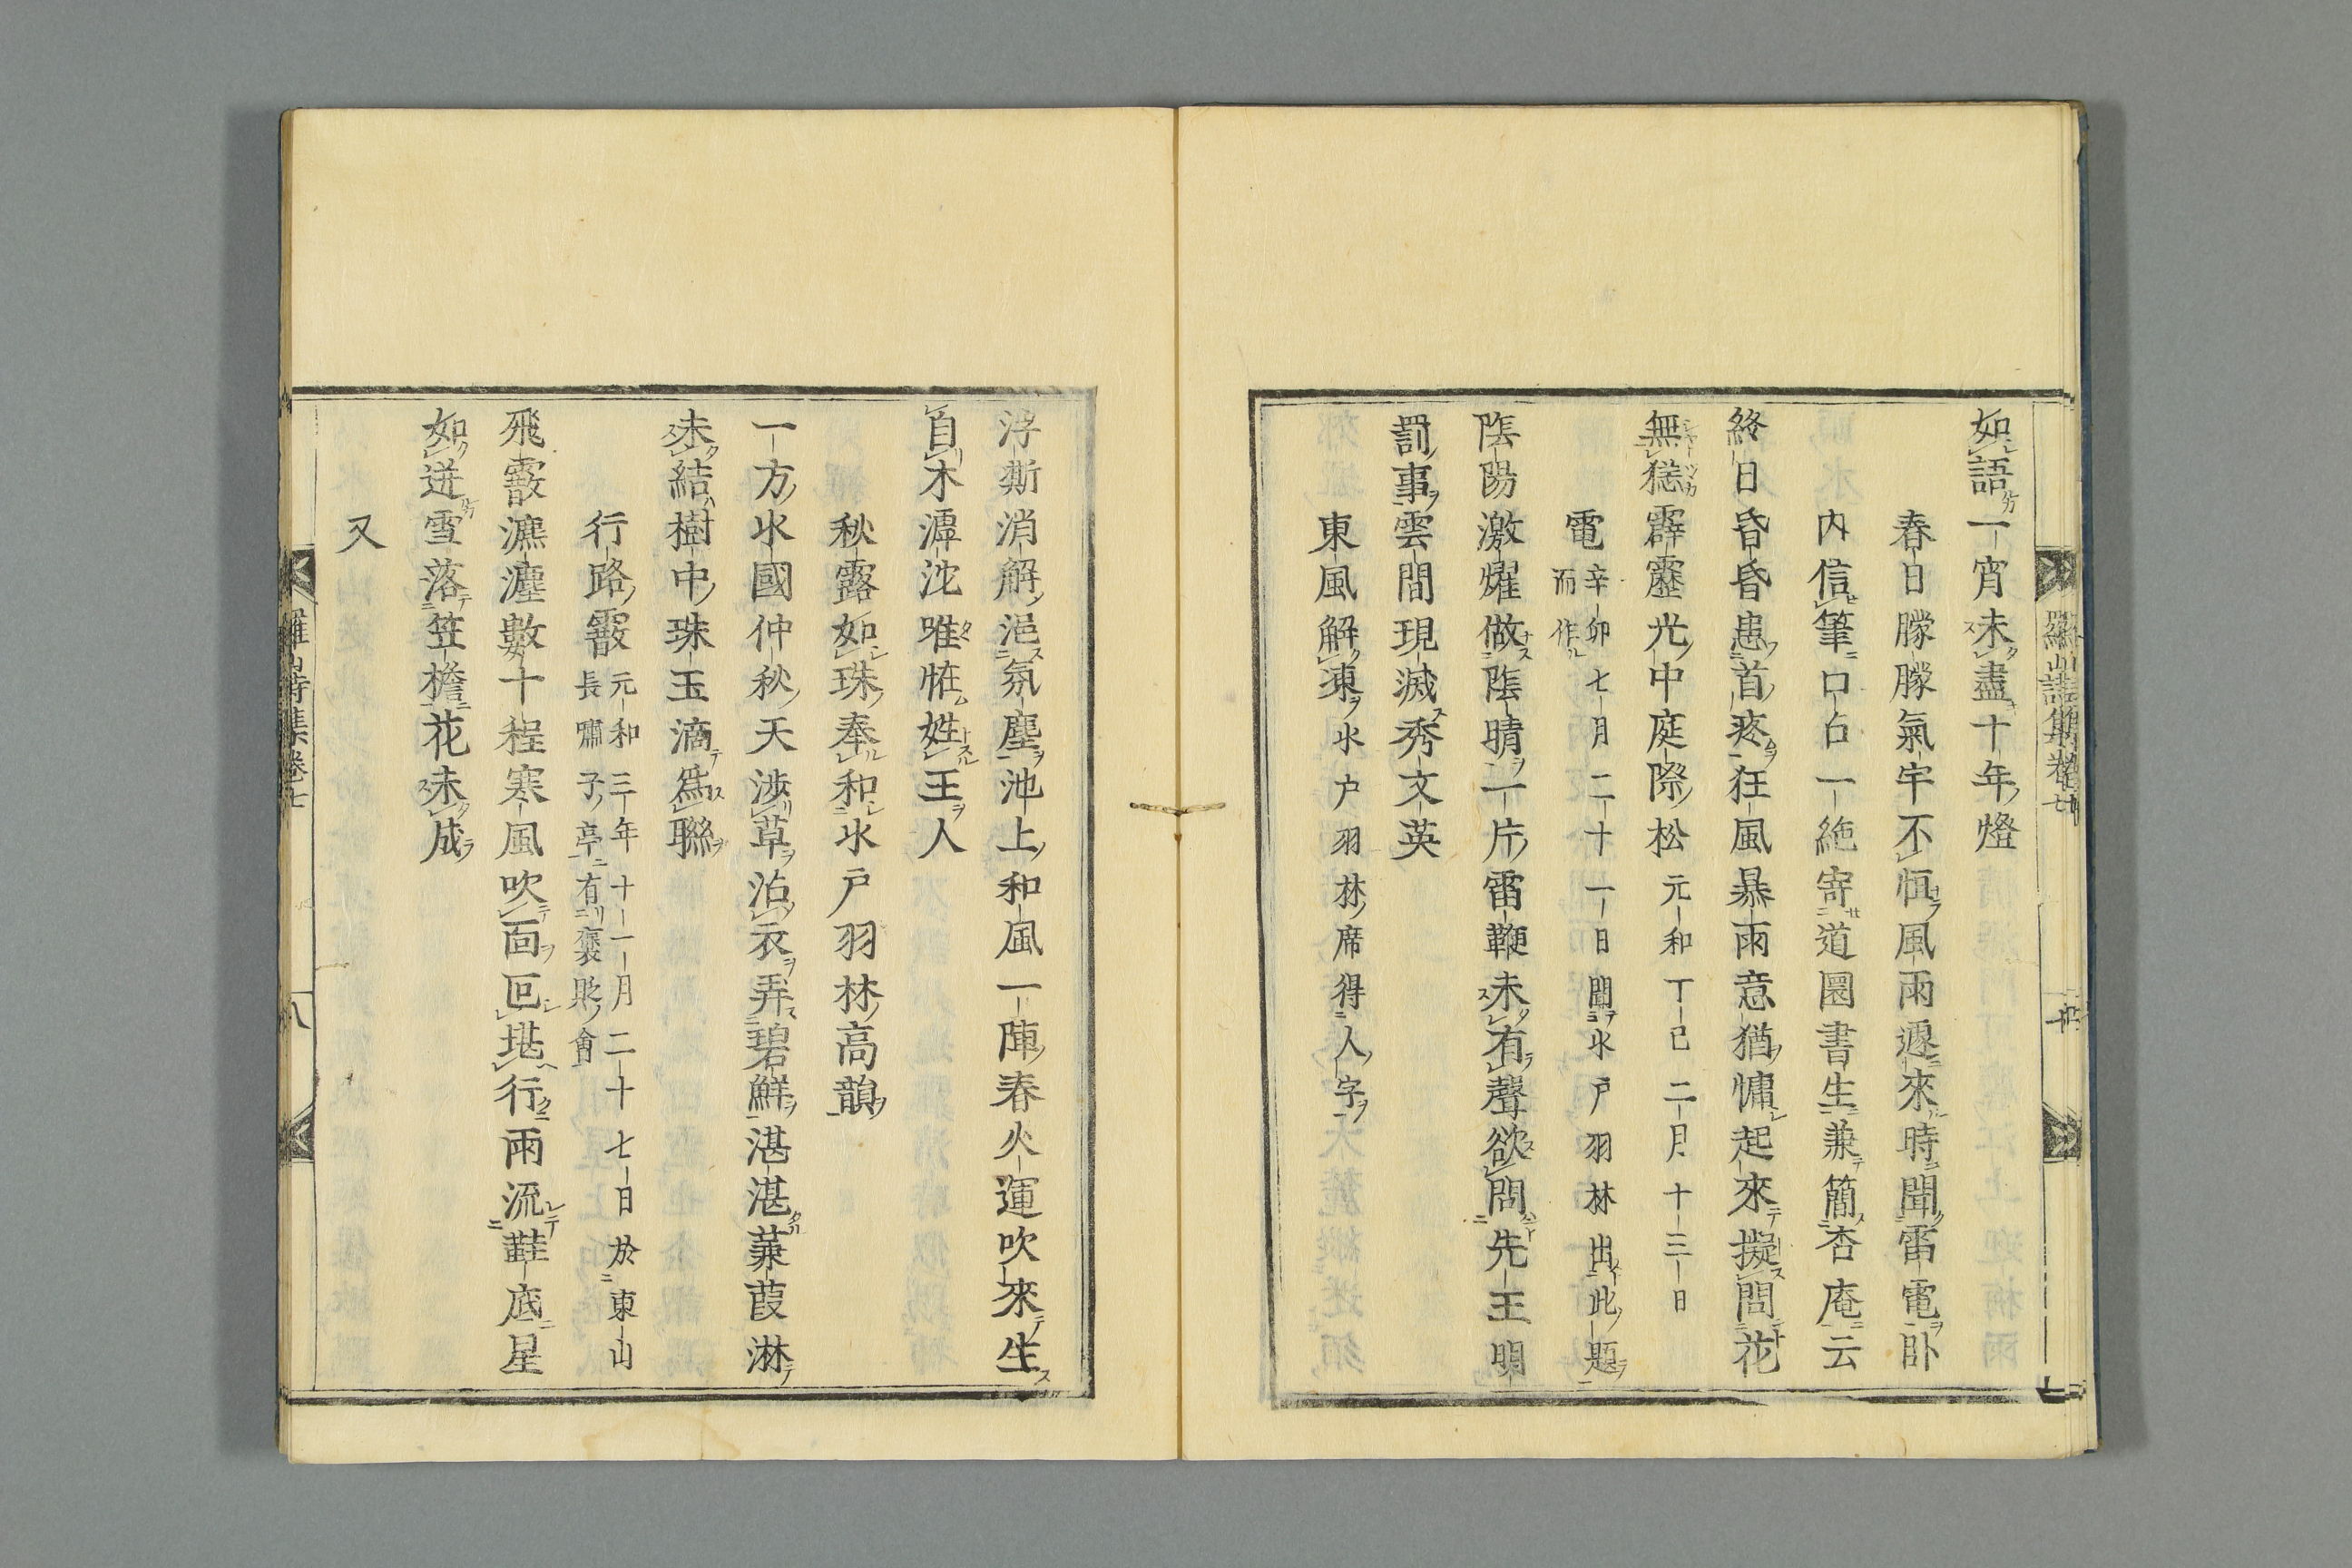 如語一宵未盡十年燈
春日朦朦氣宇不恒風雨遝來時聞雷電卧
内信筆口占一絶寄道圓書生兼簡杏庵云
終日昏昏患首疼狂風暴雨意猶慵起來擬問花
無恙霹靂光中庭際松 元和丁巳二月十三日
電 辛卯七月二十一日聞水戸羽林出此題
而作
陰陽激燿做陰晴一片雷鞭未有聲欲問先王明
罰事雲間現滅秀文英
東風解凍 水戸羽林席得人字
浮澌消解浥氛塵池上和風一陣春火運吹來生
自木潭沈唯恠姓王人
秋露如珠奉和水戸羽林高韻
一方水國仲秋天渉草沾衣弄碧鮮湛湛蒹葭淋
未結樹中珠玉滴爲聯
行路霰 元和三年十一月二十七日於東山
長嘯子亭有褒貶會
飛霰瀌瀌數十程寒風吹面回堪行雨流鞋底星
如迸雪落笠檐花未成
又
羅山詩集卷七
八
羅山詩集卷七